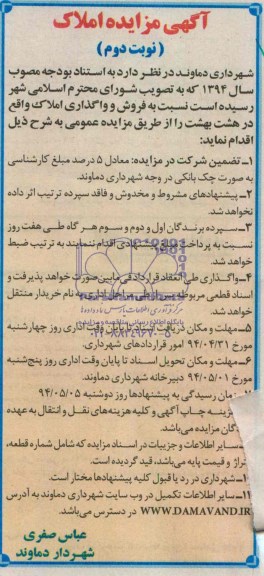 آگهی مزایده املاک
(نوبت دوم)
شهرداری دماوند در نظر دارد به استناد بودجه مصوب
سال ۱۳۹۴ که به تصویب شورای محترم اسلامی شهر
رسیده است نسبت به فروش و واگذاری املاک واقع
در هشت بهشت را از طریق مزایده عمومی به شرح ذیل
اقدام نماید:
۱ـ تضمین شرکت در مزایده: معادل ۵ درصد مبلغ کارشناسی
به صورت چک بانکی در وجه شهرداری دماوند.
۲ـ پیشنهادهای مشروط و مخدوش و فاقد سپرده ترتیب اثر داده
نخواهد شد.
۳ـ سپرده برندگان اول و دوم و سوم هر گاه طی هفت روز
نسبت به پرداخت اقدام ننمایند به ترتیب ضبط
خواهد شد.
۴ـ واگذاری طی انعقاد قرارداد فی مابین صورت خواهد پذیرفت و
اسناد قطعی مربوطه به نام خریدار منتقل
خواهد شد.
۵ـ مهلت و مکان دریافت اسناد تا پایان وقت اداری روز چهارشنبه
مورخ ۹۴/۰۴/۳۱ امور قراردادهای شهرداری.
۶ـ مهلت و مکان تحویل اسناد تا پایان وقت اداری روز پنج‌شنبه
مورخ ۹۴/۰۵/۰۱ دبیرخانه شهرداری دماوند.
زمان رسیدگی به پیشنهادها روز دوشنبه ۹۴/۰۵/۰۵
هزینه چاپ آگهی و کلیه هزینه‌های نقل و انتقال به عهده
برندگان مزایده می‌باشد.
سایر اطلاعات و جزییات در اسناد مزایده که شامل شماره قطعه،
متراژ و قیمت پایه می‌باشد، قید گردیده است.
۱۰ـ شهرداری در رد یا قبول کلیه پیشنهادها مختار است.
۱۱ـ سایر اطلاعات تکمیل در وب سایت شهرداری دماوند به آدرس
WWW.DAMAVAND.IR در دسترس می‌باشد.
عباس صفری
شهردار دماوند